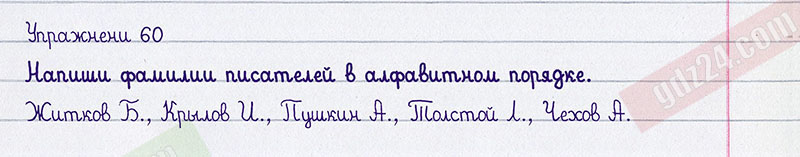 Упражнени 60
Напиши фамилии писателей в алфавитном порядке.
Житков Б., Крылов И., Пушкин А., Толстой Л., Чехов А.
gdz24.com